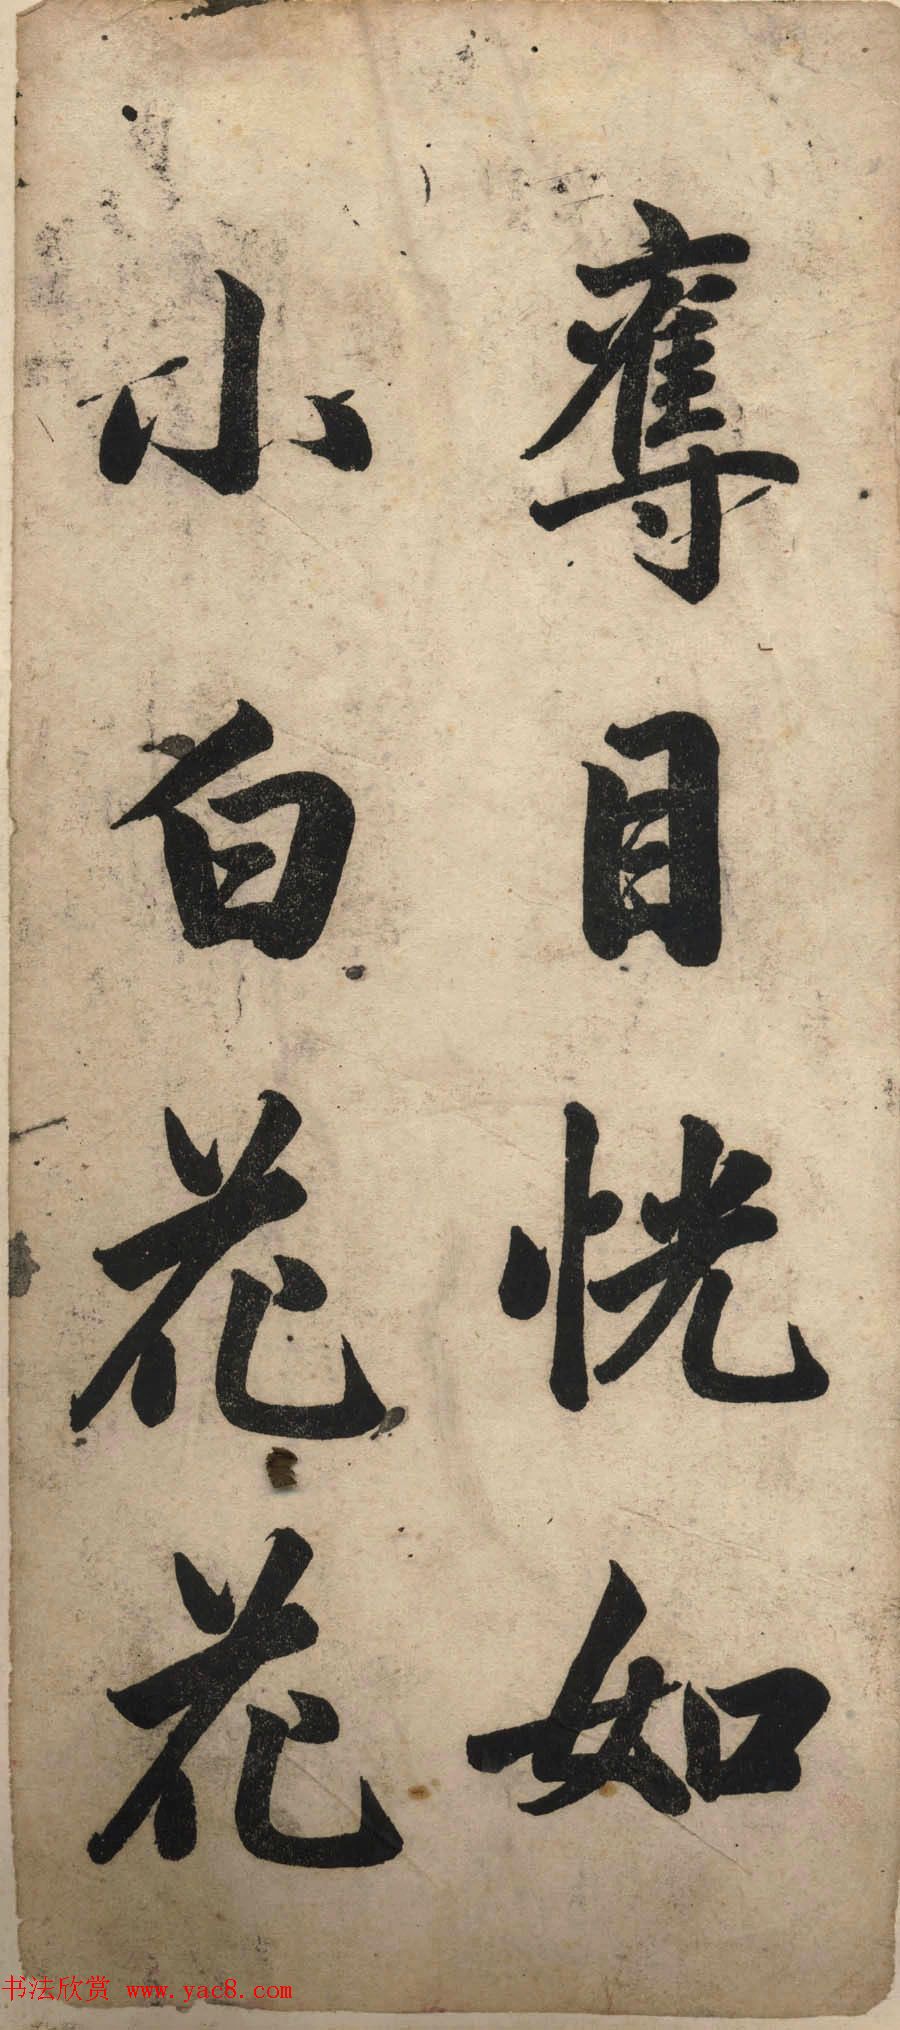 奪目恍如
小白花花
书法欣赏 www.yac8.com